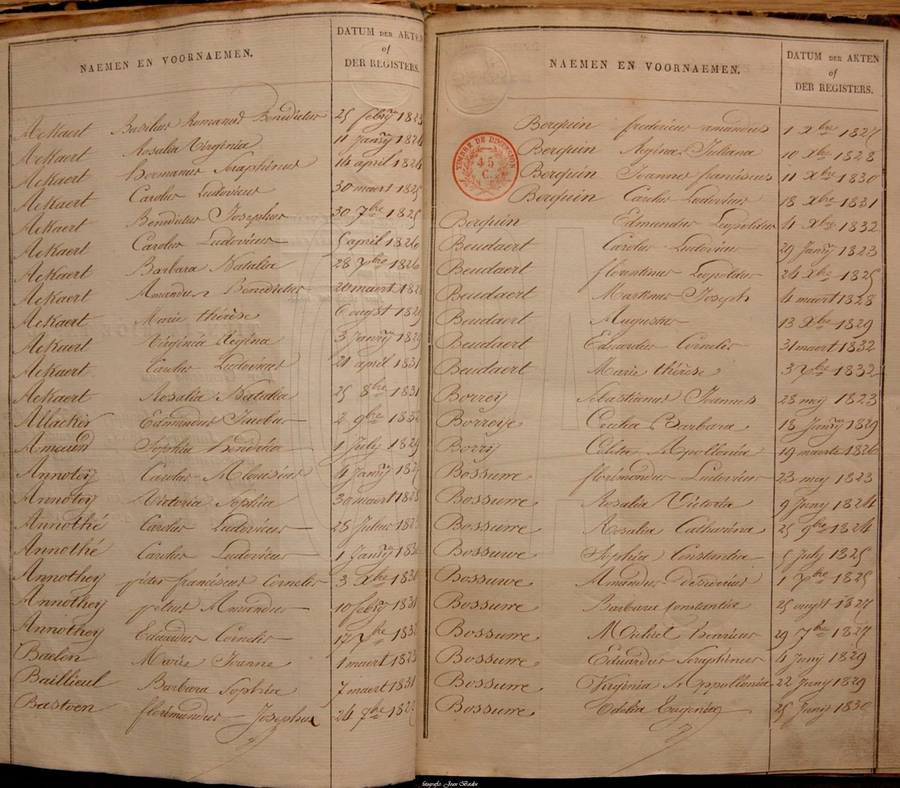 NAEMEN EN VOORNAEMEN.
DATUM DER AKTEN
of
DER REGISTERS.
Ackaert Basilius Romanus Benedictus 25 febry 1823
Ackaert Rosalia Virginia 11 Janry 1824
Ackaert hermanus Seraphinus 14 april 1824
Ackaert Carolus Ludovicus 30 maert 1825
Ackaert Benedictus Josephus 30 7bre 1825
Ackaert Carolus Ludovicus 5 april 1826
Ackaert Barbara Natalia 28 1826
Ackaert Amandus Benedictus 20 maert 1828
Ackaert Marie thérèse 6 ougst
Ackaert Virginia Regina 3 Janry
Ackaert Carolus Ludovicus 21 april 1831
Ackaert Rosalia Natalia 25 8bre 1831
Allacker Edmundus Jacobus 2 9bre
Sophia 1 July 1829
Annotoy Carolus Aloysius 4 Janry
Annotoy Victoria Sophia 30 maert 1823
Annothé Carolus Ludovicus 28
Annothé Carolus Ludovicus 1 Janry
Annothoy pieter franciscus Cornelis 3 Xbre
Annothoy petrus Amandus 10 febry 1831
Annothoy Eduardus Cornelis 17
Baelen Marie Jeanne 1 maert
Baillieul Barbara Sophia 7 maert 1831
Bastoen florimondus Josephus 24
NAEMEN EN VOORNAEMEN.
DATUM DER AKTEN
of
DER REGISTERS.
TIMBRE DE DIMENSION
45
C.
Berquin fredericus amandus 1 Xbre 1827
Berquin Regina Juliana 10 Xbre 1828
Berquin Joannes franciscus 11 Xbre 1830
Berquin Carolus Ludovicus 18 Xbre 1831
Berquin Edmundus Leopoldus 4 Xbre 1832
Beudaert Carolus Ludovicus 29 Janry 1823
Beudaert florentinus Leopoldus 24 Xbre 1825
Beudaert Martinus Joseph 4 maert 1828
Beudaert Augustus 13 Xbre 1829
Beudaert Eduardus Cornelis 31 maert 1832
Beudaert Marie thérèse 3 1832
Borrey Sebastianus Joannes 28 mey 1823
Borroye Cecilia Barbara 18 Janry 1829
Borry Apollonia 19 1826
Bossuwe florimondus Ludovicus 23 mey 1823
Bossuwe Rosalia Victoria 9 Juny 1824
Bossuwe Rosalia Catharina 25 9bre 1824
Bossuwe Sophia Constantia 5 July 1825
Bossuwe Amandus Desiderius 1 1825
Bossuwe Barbara Constantia 25 ougst 1827
Bossuwe Henricus 29 7bre 1827
Bossuwe Eduardus Seraphinus 4 Juny 1829
Bossuwe Virginia Appollonia 22 Juny 1829
Bossuwe Eugenia 25 Juny 1830